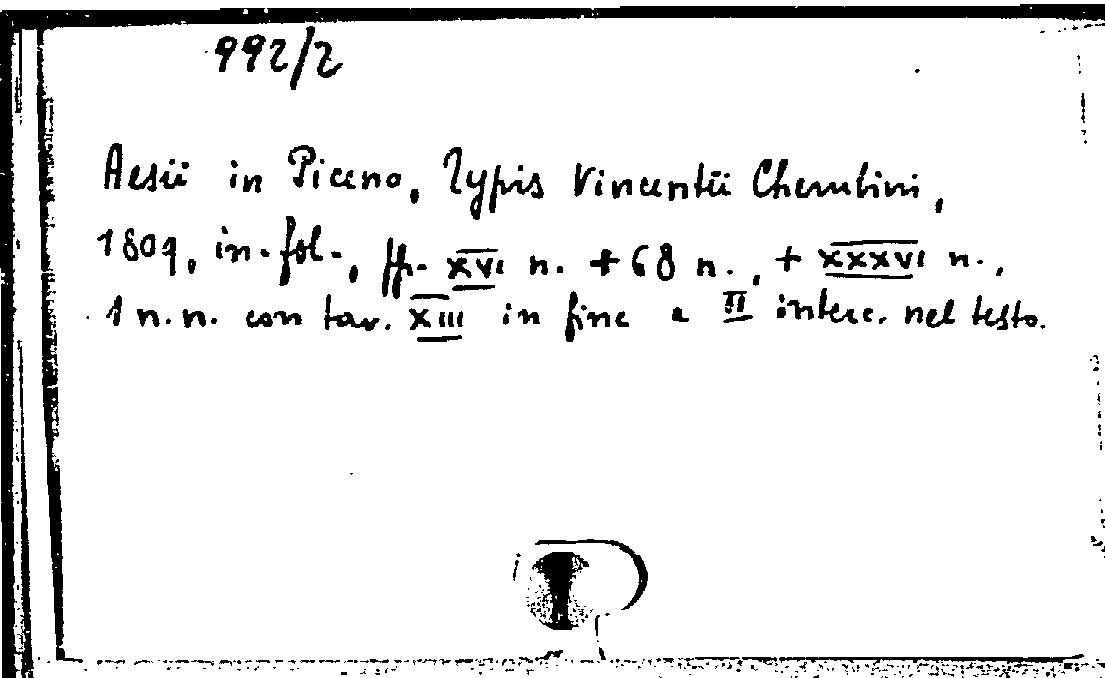 992/2
Aesii in Piceno, Typis Vincentii Cherubini,
1809, in-fol-, pp. XVI n. + 68 n., + XXXVI n.,
1 n.n. con tav. XIII in fine e II interc. nel testo.